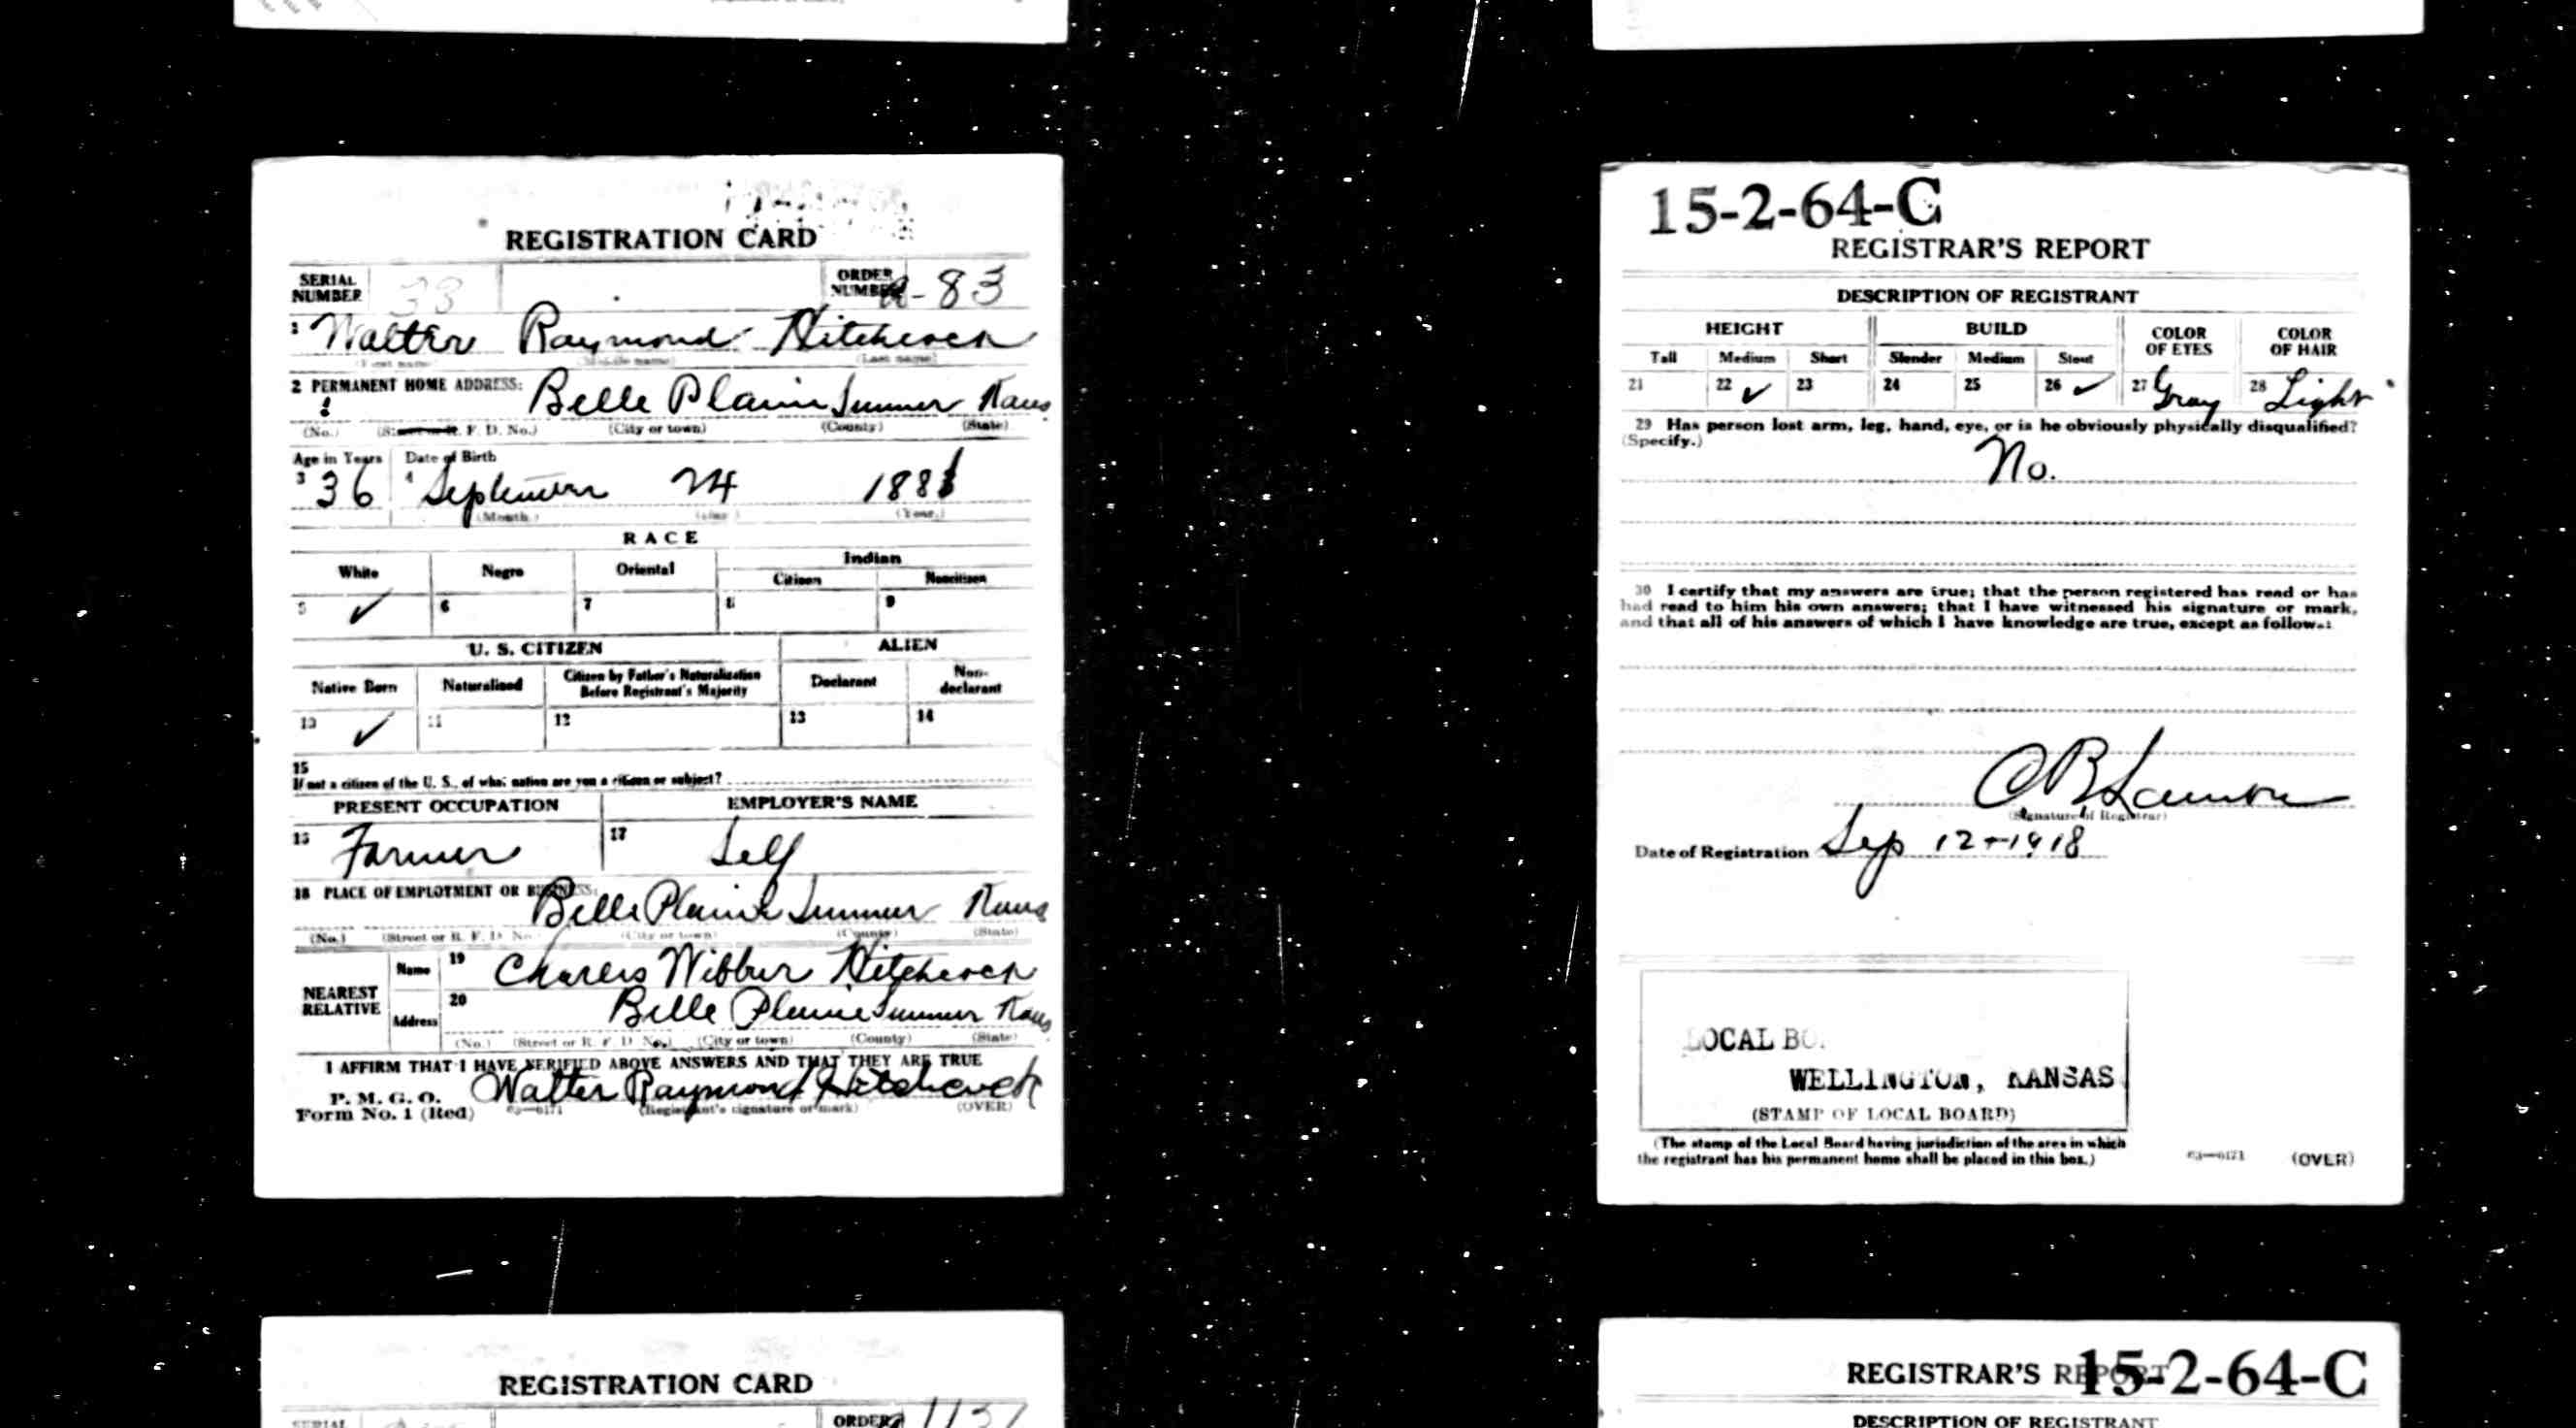 REGISTRATION CARD
SERIAL NUMBER 33 ORDER NUMBER A-83
1 Walter Raymond Hitchcock
(First name) (Middle name) (Last name)
2 PERMANENT HOME ADDRESS: Belle Plaine Sumner Kans
(No.) (Street or R. F. D. No.) (City or town) (County) (State)
Age in Years Date of Birth
3 36 4 September 24 188
(Month.) (Day.) (Year.)
RACE
White Negro Oriental Indian
Citizen Noncitizen
5 ✓ 6 7 8 9
U. S. CITIZEN ALIEN
Native Born Naturalized Citizen by Father's Naturalization Before Registrant's Majority Declarant Non-declarant
10 ✓ 11 12 13 14
15
If not a citizen of the U. S., of what nation are you a citizen or subject?
PRESENT OCCUPATION EMPLOYER'S NAME
16 Farmer 17 Self
18 PLACE OF EMPLOYMENT OR BUSINESS: Belle Plaine Sumner Kans
(No.) (Street or R. F. D. No.) (City or town) (County) (State)
NEAREST RELATIVE Name 19 Charles Wilbur Hitchcock
Address 20 Belle Plaine Sumner Kans
(No.) (Street or R. F. D. No.) (City or town) (County) (State)
I AFFIRM THAT I HAVE VERIFIED ABOVE ANSWERS AND THAT THEY ARE TRUE
P. M. G. O.
Form No. 1 (Red) 03—6171 Walter Raymond Hitchcock
(Registrant's signature or mark) (OVER)
15-2-64-C
REGISTRAR'S REPORT
DESCRIPTION OF REGISTRANT
HEIGHT BUILD COLOR OF EYES COLOR OF HAIR
Tall Medium Short Slender Medium Stout
21 22 ✓ 23 24 25 26 ✓ 27 Gray 28 Light
29 Has person lost arm, leg, hand, eye, or is he obviously physically disqualified?
(Specify.)
No.
30 I certify that my answers are true; that the person registered has read or has
had read to him his own answers; that I have witnessed his signature or mark,
and that all of his answers of which I have knowledge are true, except as follows:
(Signature of Registrar)
Date of Registration Sep 12-1918
LOCAL BO
WELLINGTON, KANSAS
(STAMP OF LOCAL BOARD)
(The stamp of the Local Board having jurisdiction of the area in which
the registrant has his permanent home shall be placed in this box.)
03—6171 (OVER)
REGISTRATION CARD
SERIAL ORDER 1137
REGISTRAR'S REPORT 15-2-64-C
DESCRIPTION OF REGISTRANT